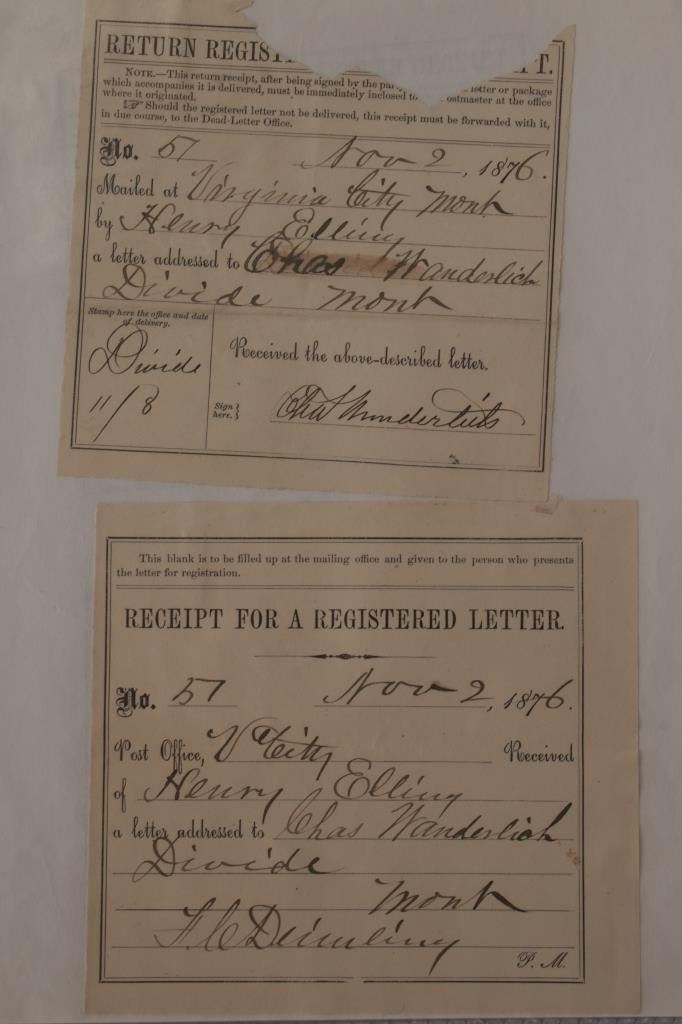 RETURN REGIST PT.
NOTE.—This return receipt, after being signed by the par letter or package
which accompanies it is delivered, must be immediately inclosed to ostmaster at the office
where it originated.
☞ Should the registered letter not be delivered, this receipt must be forwarded with it,
in due course, to the Dead-Letter Office.
No. 51 Nov 2, 1876.
Mailed at Virginia City Mont
by Henry Elling
a letter addressed to Chas Wanderlich
Divide Mont
Stamp here the office and date
of delivery.
Divide
11/8
Received the above-described letter.
Sign
here.
Chas
This blank is to be filled up at the mailing office and given to the person who presents
the letter for registration.
RECEIPT FOR A REGISTERED LETTER.
No. 51 Nov 2, 1876.
Post Office, V City Received
of Henry Elling
a letter addressed to Chas Wanderlich
Divide
Mont
F. C. Deimling
P. M.